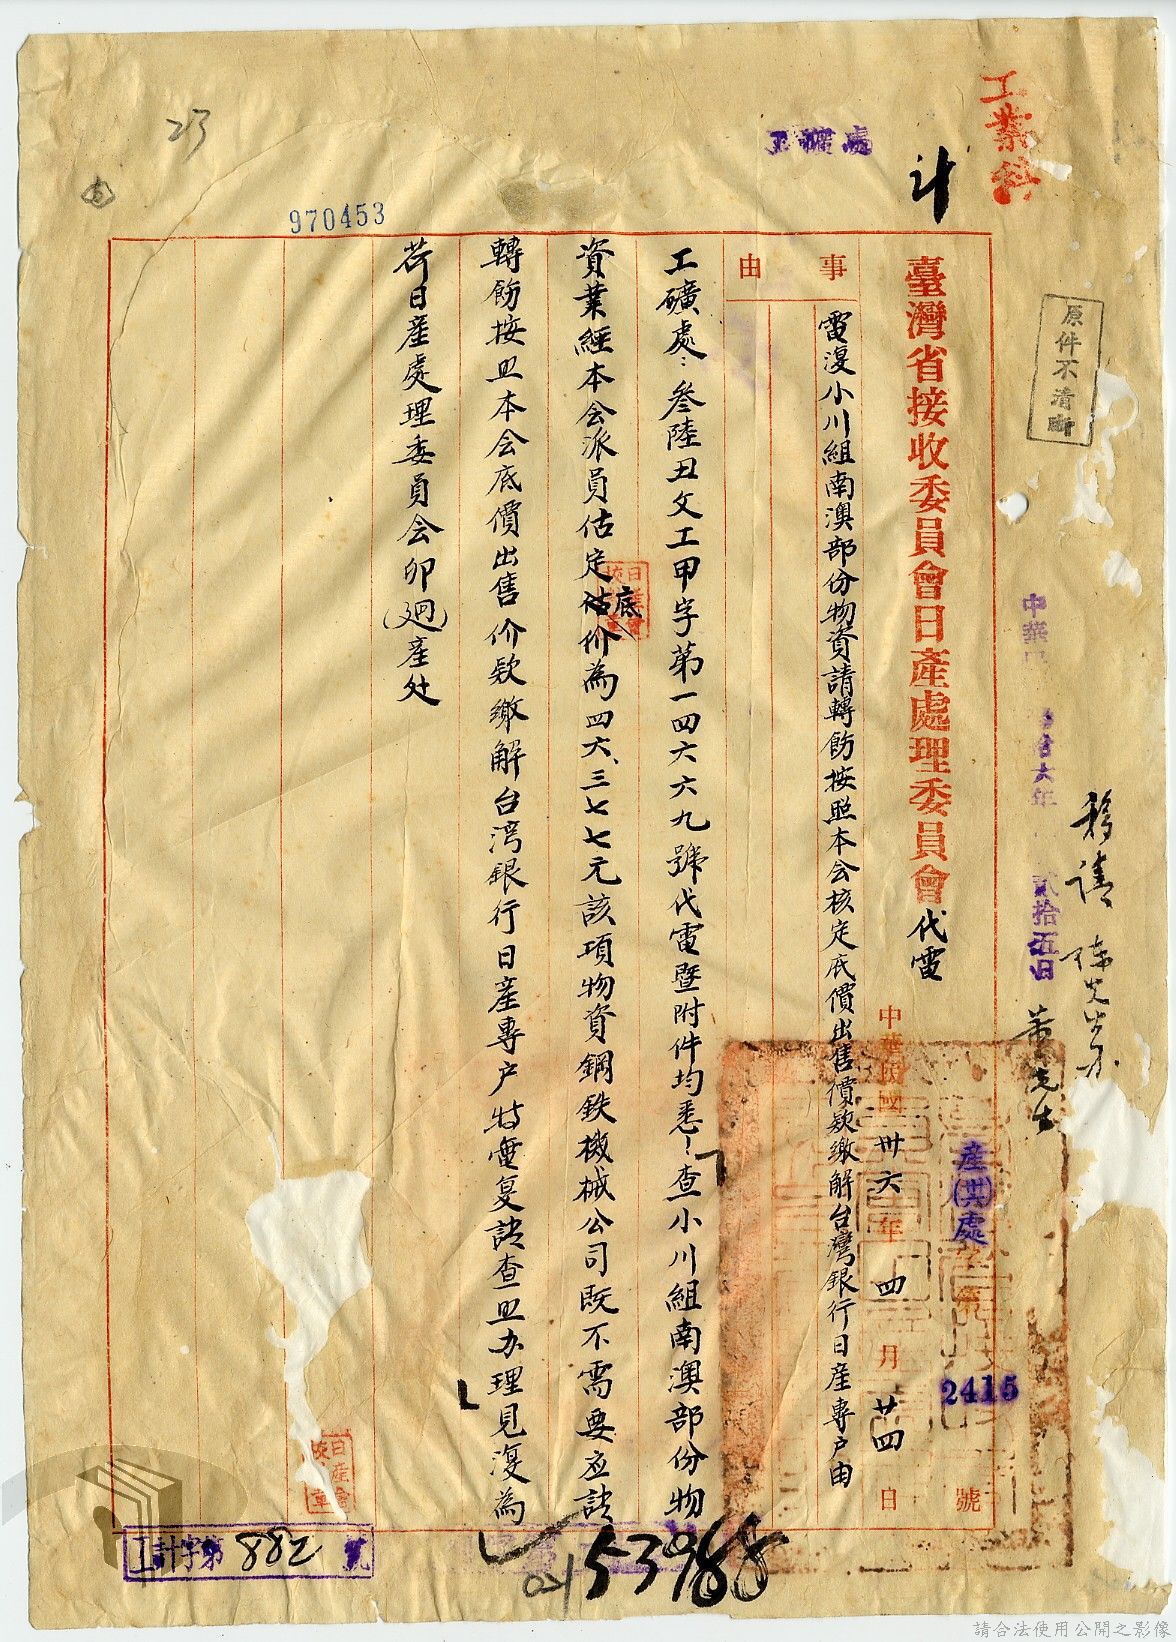 工業科
工礦處
計
23
970453
原件不清晰
移請 陳先生办
黃先生
中華民 六年 貳拾五日
臺灣省接收委員會日產處理委員會代電
產(卅六)處 字第 2415 號
中華民國卅六年四月廿四日
事由
電復小川組南澳部份物資請轉飭按照本会核定底價出售價款繳解台灣銀行日產專户由
工礦處:叁陸丑文工甲字第一四六六九號代電暨附件均悉!查小川組南澳部份物
資業經本会派員估定底价為四六、三七七元該項物資鋼鉄機械公司既不需要应請
轉飭按照本会底價出售价款繳解台湾銀行日產專户特電复請查照办理見復為
荷日產處理委員会卯(廻)產处
工計字第882號
53988
請合法使用公開之影像